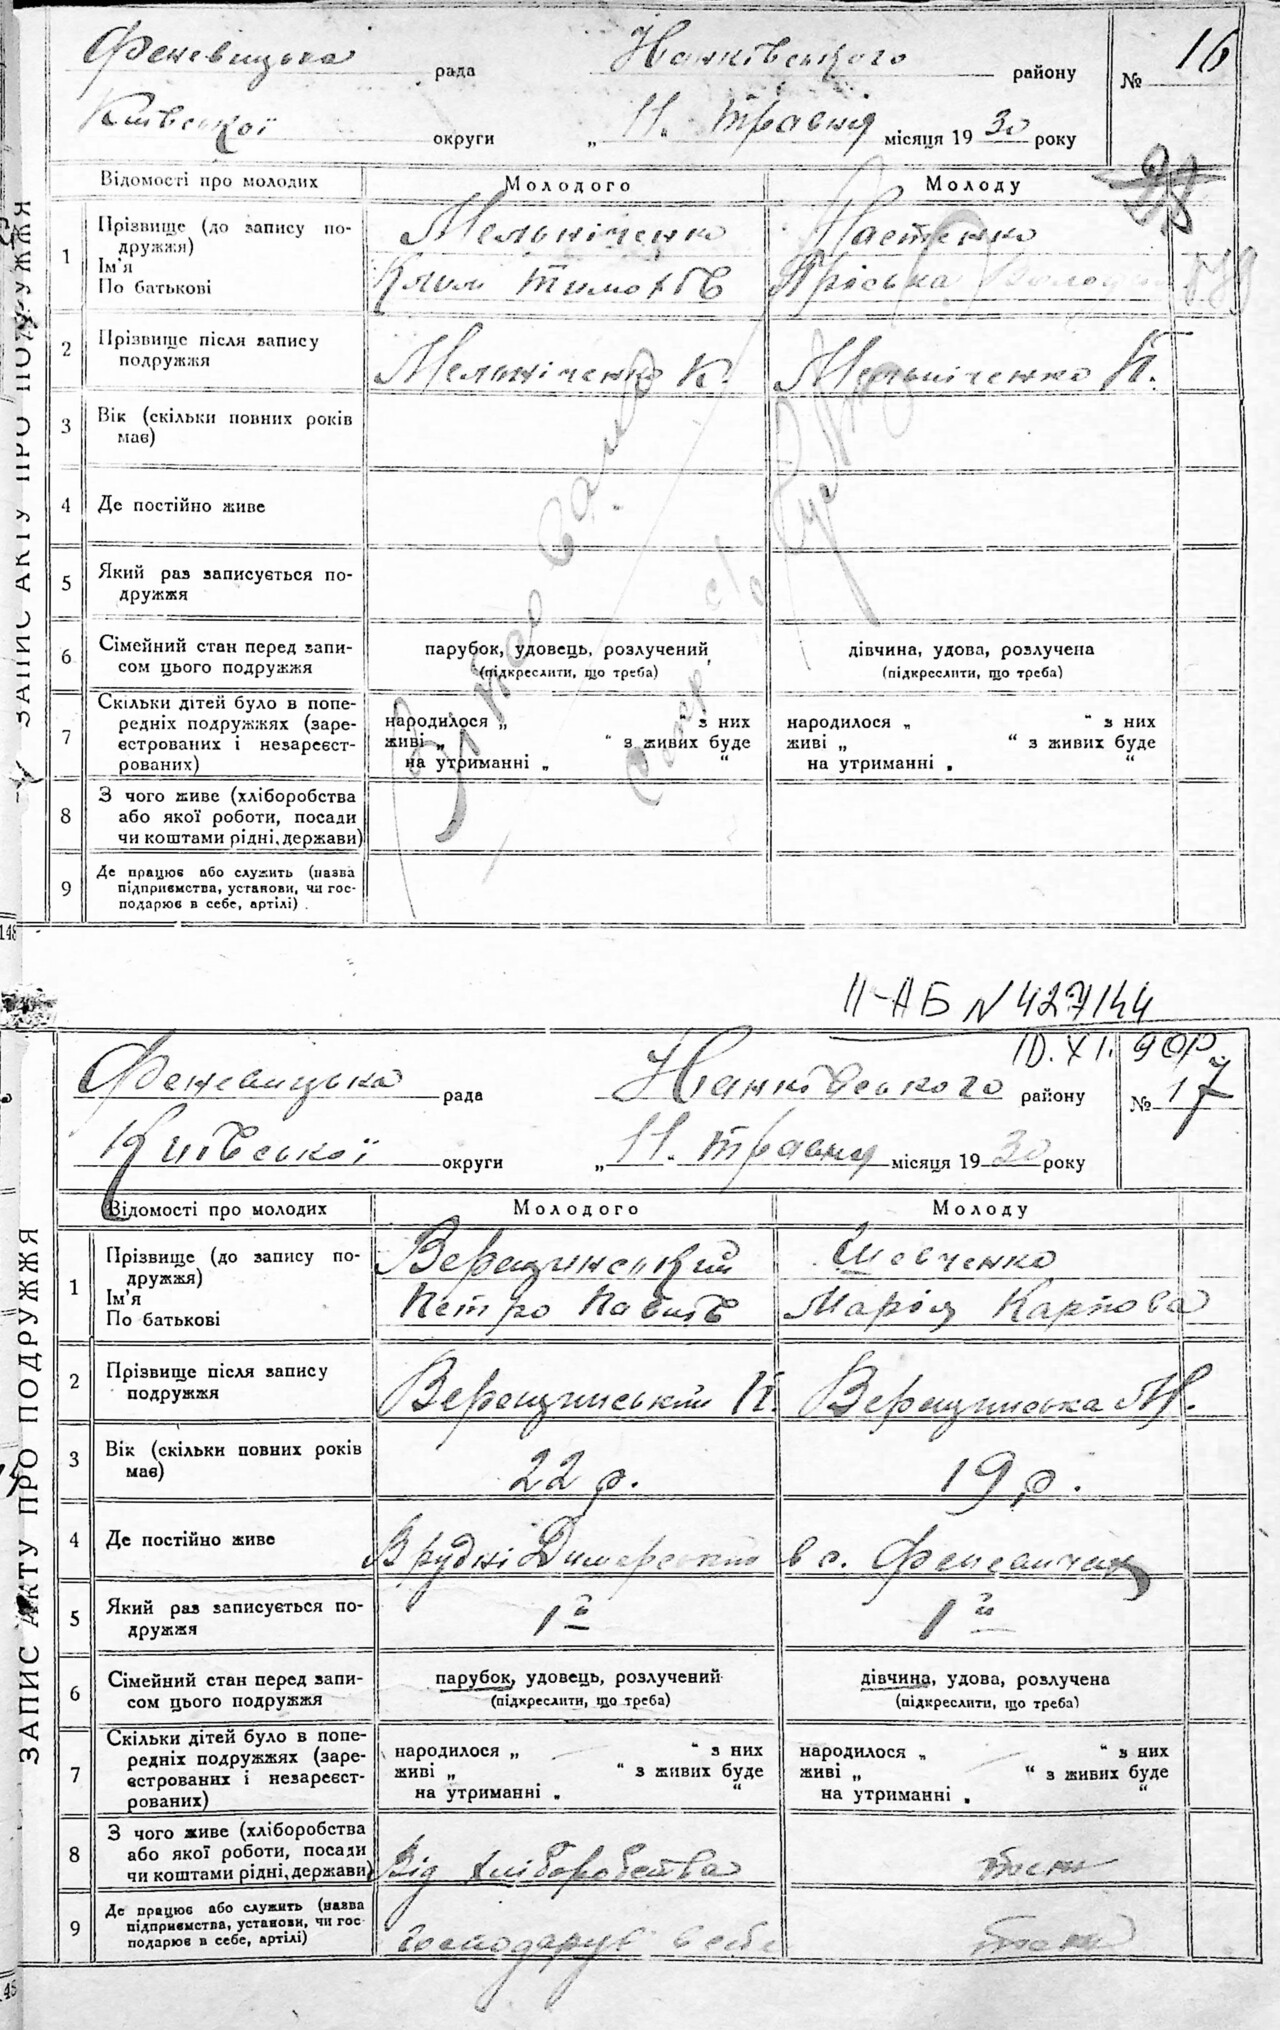 Феневицька рада Иванківського району № 16
Київської округи „ 11. травня місяця 1930 року
28
ЗАПИС АКТУ ПРО ПОДРУЖЖЯ
Відомості про молодих Молодого Молоду
1 Прізвище (до запису по-
дружжя)
Ім'я
По батькові
Мельніченко
Клим Тимохів
Пастенко
Пріська
2 Прізвище після запису
подружжя
Мельніченко К. Мельніченко П.
3 Вік (скільки повних років
має)
4 Де постійно живе
5 Який раз записується по-
дружжя
6 Сімейний стан перед запи-
сом цього подружжя
парубок, удовець, розлучений
(підкреслити, що треба)
дівчина, удова, розлучена
(підкреслити, що треба)
7 Скільки дітей було в попе-
редніх подружжях (заре-
єстрованих і незареєст-
рованих)
народилося „ “ з них
живі „ “ з живих буде
на утриманні „ “
народилося „ “ з них
живі „ “ з живих буде
на утриманні „ “
8 З чого живе (хліборобства
або якої роботи, посади
чи коштами рідні, держави)
9 Де працює або служить (назва
підприємства, установи, чи гос-
подарює в себе, артілі)
148
II-АБ N 427144
10. XI. 90р
Феневицька рада Иванківського району № 17
Київської округи „ 11. травня місяця 1930 року
ЗАПИС АКТУ ПРО ПОДРУЖЖЯ
Відомості про молодих Молодого Молоду
1 Прізвище (до запису по-
дружжя)
Ім'я
По батькові
Верещинський
Петро Павлів
Шевченко
Марія Карпова
2 Прізвище після запису
подружжя
Верещинський П. Верещинська М.
3 Вік (скільки повних років
має)
22 р. 19 р.
4 Де постійно живе
В рудні Димерський в с. Феневичах
5 Який раз записується по-
дружжя
1й 1й
6 Сімейний стан перед запи-
сом цього подружжя
парубок, удовець, розлучений
(підкреслити, що треба)
дівчина, удова, розлучена
(підкреслити, що треба)
7 Скільки дітей було в попе-
редніх подружжях (заре-
єстрованих і незареєст-
рованих)
народилося „ “ з них
живі „ “ з живих буде
на утриманні „ “
народилося „ “ з них
живі „ “ з живих буде
на утриманні „ “
8 З чого живе (хліборобства
або якої роботи, посади
чи коштами рідні, держави)
Від хліборобства
9 Де працює або служить (назва
підприємства, установи, чи гос-
подарює в себе, артілі)
господарує в себе